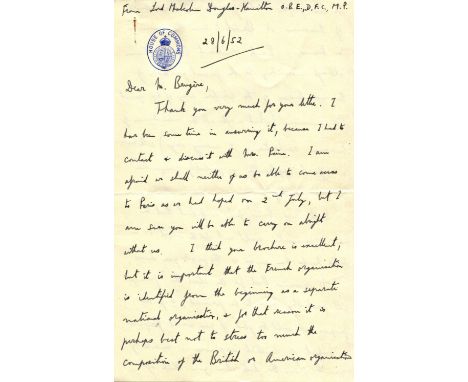 From Lord Malcolm Douglas-Hamilton O.B.E., D.F.C., M.P.
HOUSE OF COMMONS
28/6/52
Dear M. Bengère,
Thank you very much for your letter. I
has been some time in answering it, because I had to
contact & discuss it with Mrs. Paine. I am
afraid we shall neither of us be able to come across
to Paris as we had hoped on 2nd July, but I
am sure you will be able to carry on alright
without us. I think your brochure is excellent,
but it is important that the French organisation
is identified from the beginning as a separate
national organisation, & for that reason it is
perhaps best not to stress too much the
composition of the British or American organisations